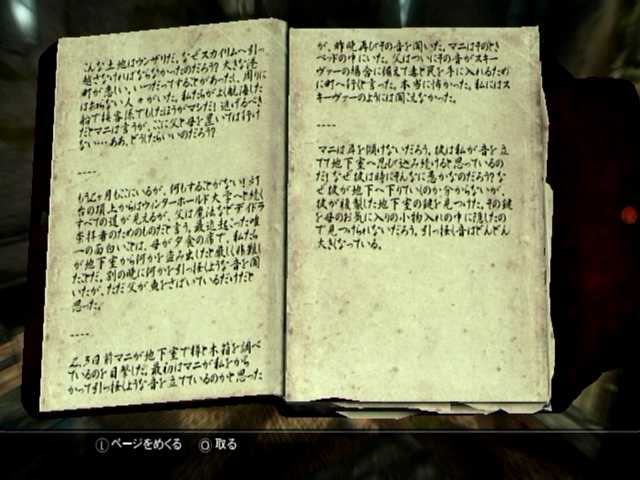 こんな土地はウンザリだ。なぜスカイリムへ引っ
越さなければならなかったのだろう？大きな港
町が恋しい。いつだってすることがあったし、周りに
はおもしろい人々がいた。私たちがよく航海した
船で接客係でもしたほうがマシだ！逃げるべき
だとマニは言うが、ここに父と母を置いては行け
ない…ああ、どうしたらいいのだろう？
----
もう2ヶ月もここにいるが、何もすることがない！灯
台の頂上からはウィンターホールド大学へと続く
すべての道が見えるが、父は魔法などデイドラ
崇拝者のためのものだと言う。最近起こった唯
一の面白いことは、母が夕食の席で、私たち
が地下室から何かを盗み出したと厳しく非難し
たことだ。別の晩に何かを引っ掻くような音を聞
いたが、ただ父が魚をさばいているだけだと
思った。
----
2、3日前マニが地下室で樽と木箱を調べ
ているのを目撃した。最初はマニが私をから
かって引っ掻くような音を立てているのかと思った
が、昨晩再びその音を聞いた。マニはそのとき
ベッドの中にいた。父はついにその音がスキー
ヴァーの場合に備えて毒と罠を手に入れるため
に町へ行くと言った。本当に怖かった。私にはス
キーヴァーのようには聞こえなかった。
----
マニは耳を傾けないだろう。彼は私が音を立
てて地下室へ忍び込み続けると思っているの
だ！なぜ彼は時にそんなに愚かなのだろう？な
ぜ彼が地下へ下りていくのか分からないが、
彼が複製した地下室の鍵を見つけた。その鍵
を母のお気に入りの小物入れの中に隠したの
で見つけられないだろう。引っ掻く音はどんどん
大きくなっている。
Ⓛページをめくる Ⓞ取る